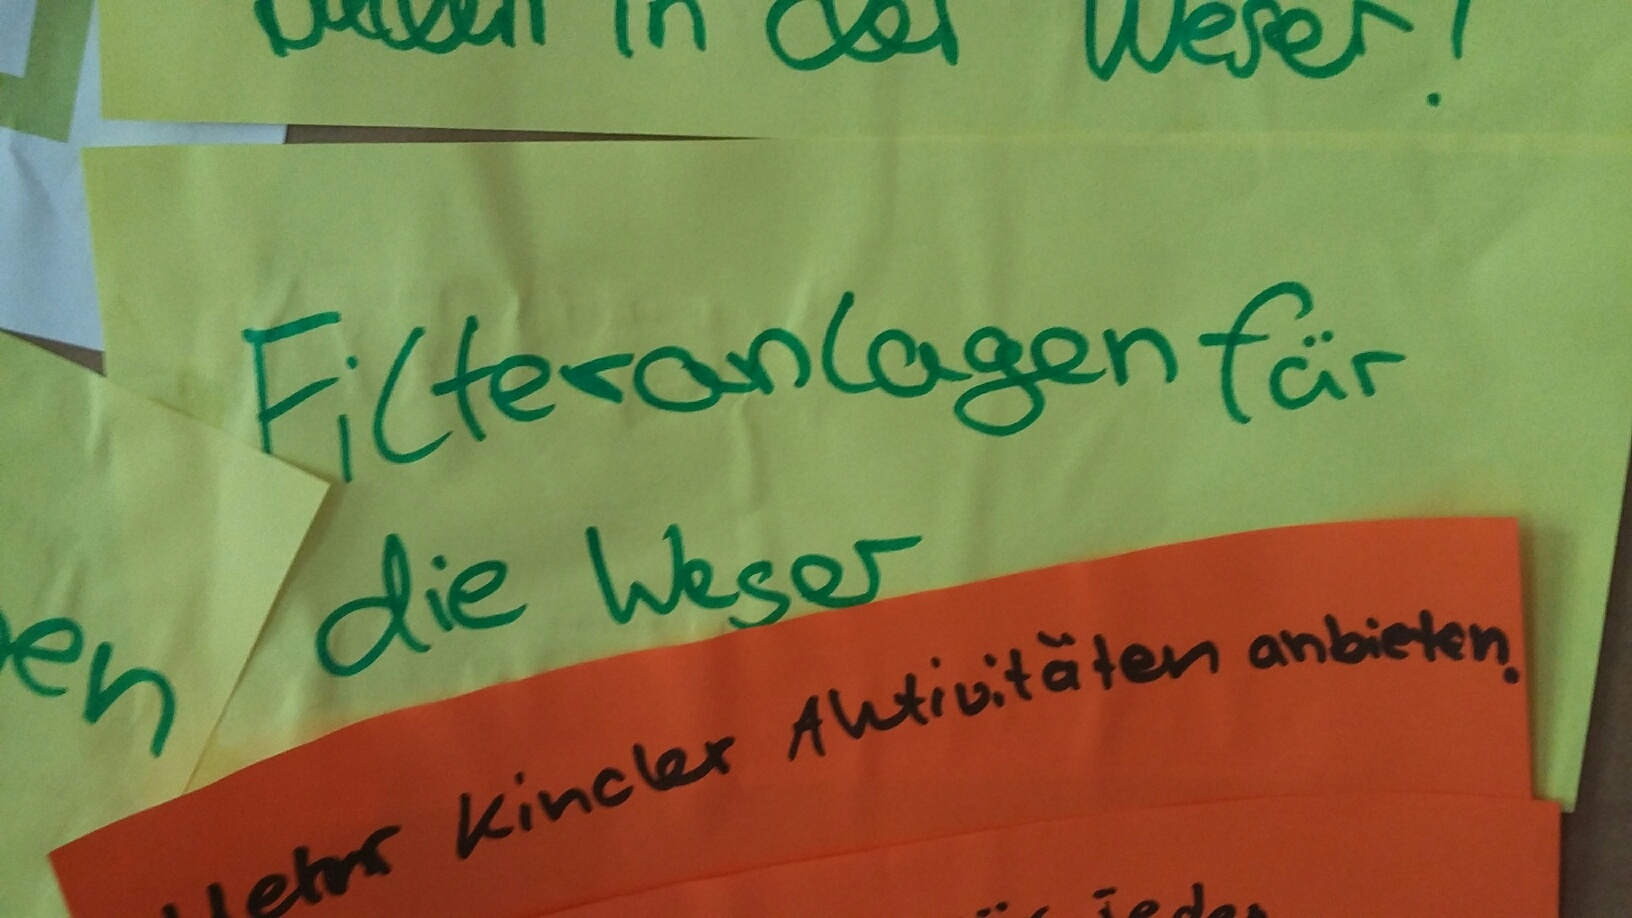 in der Weser!
Filteranlagen für
die Weser
Mehr Kinder Aktivitäten anbieten.
jeden